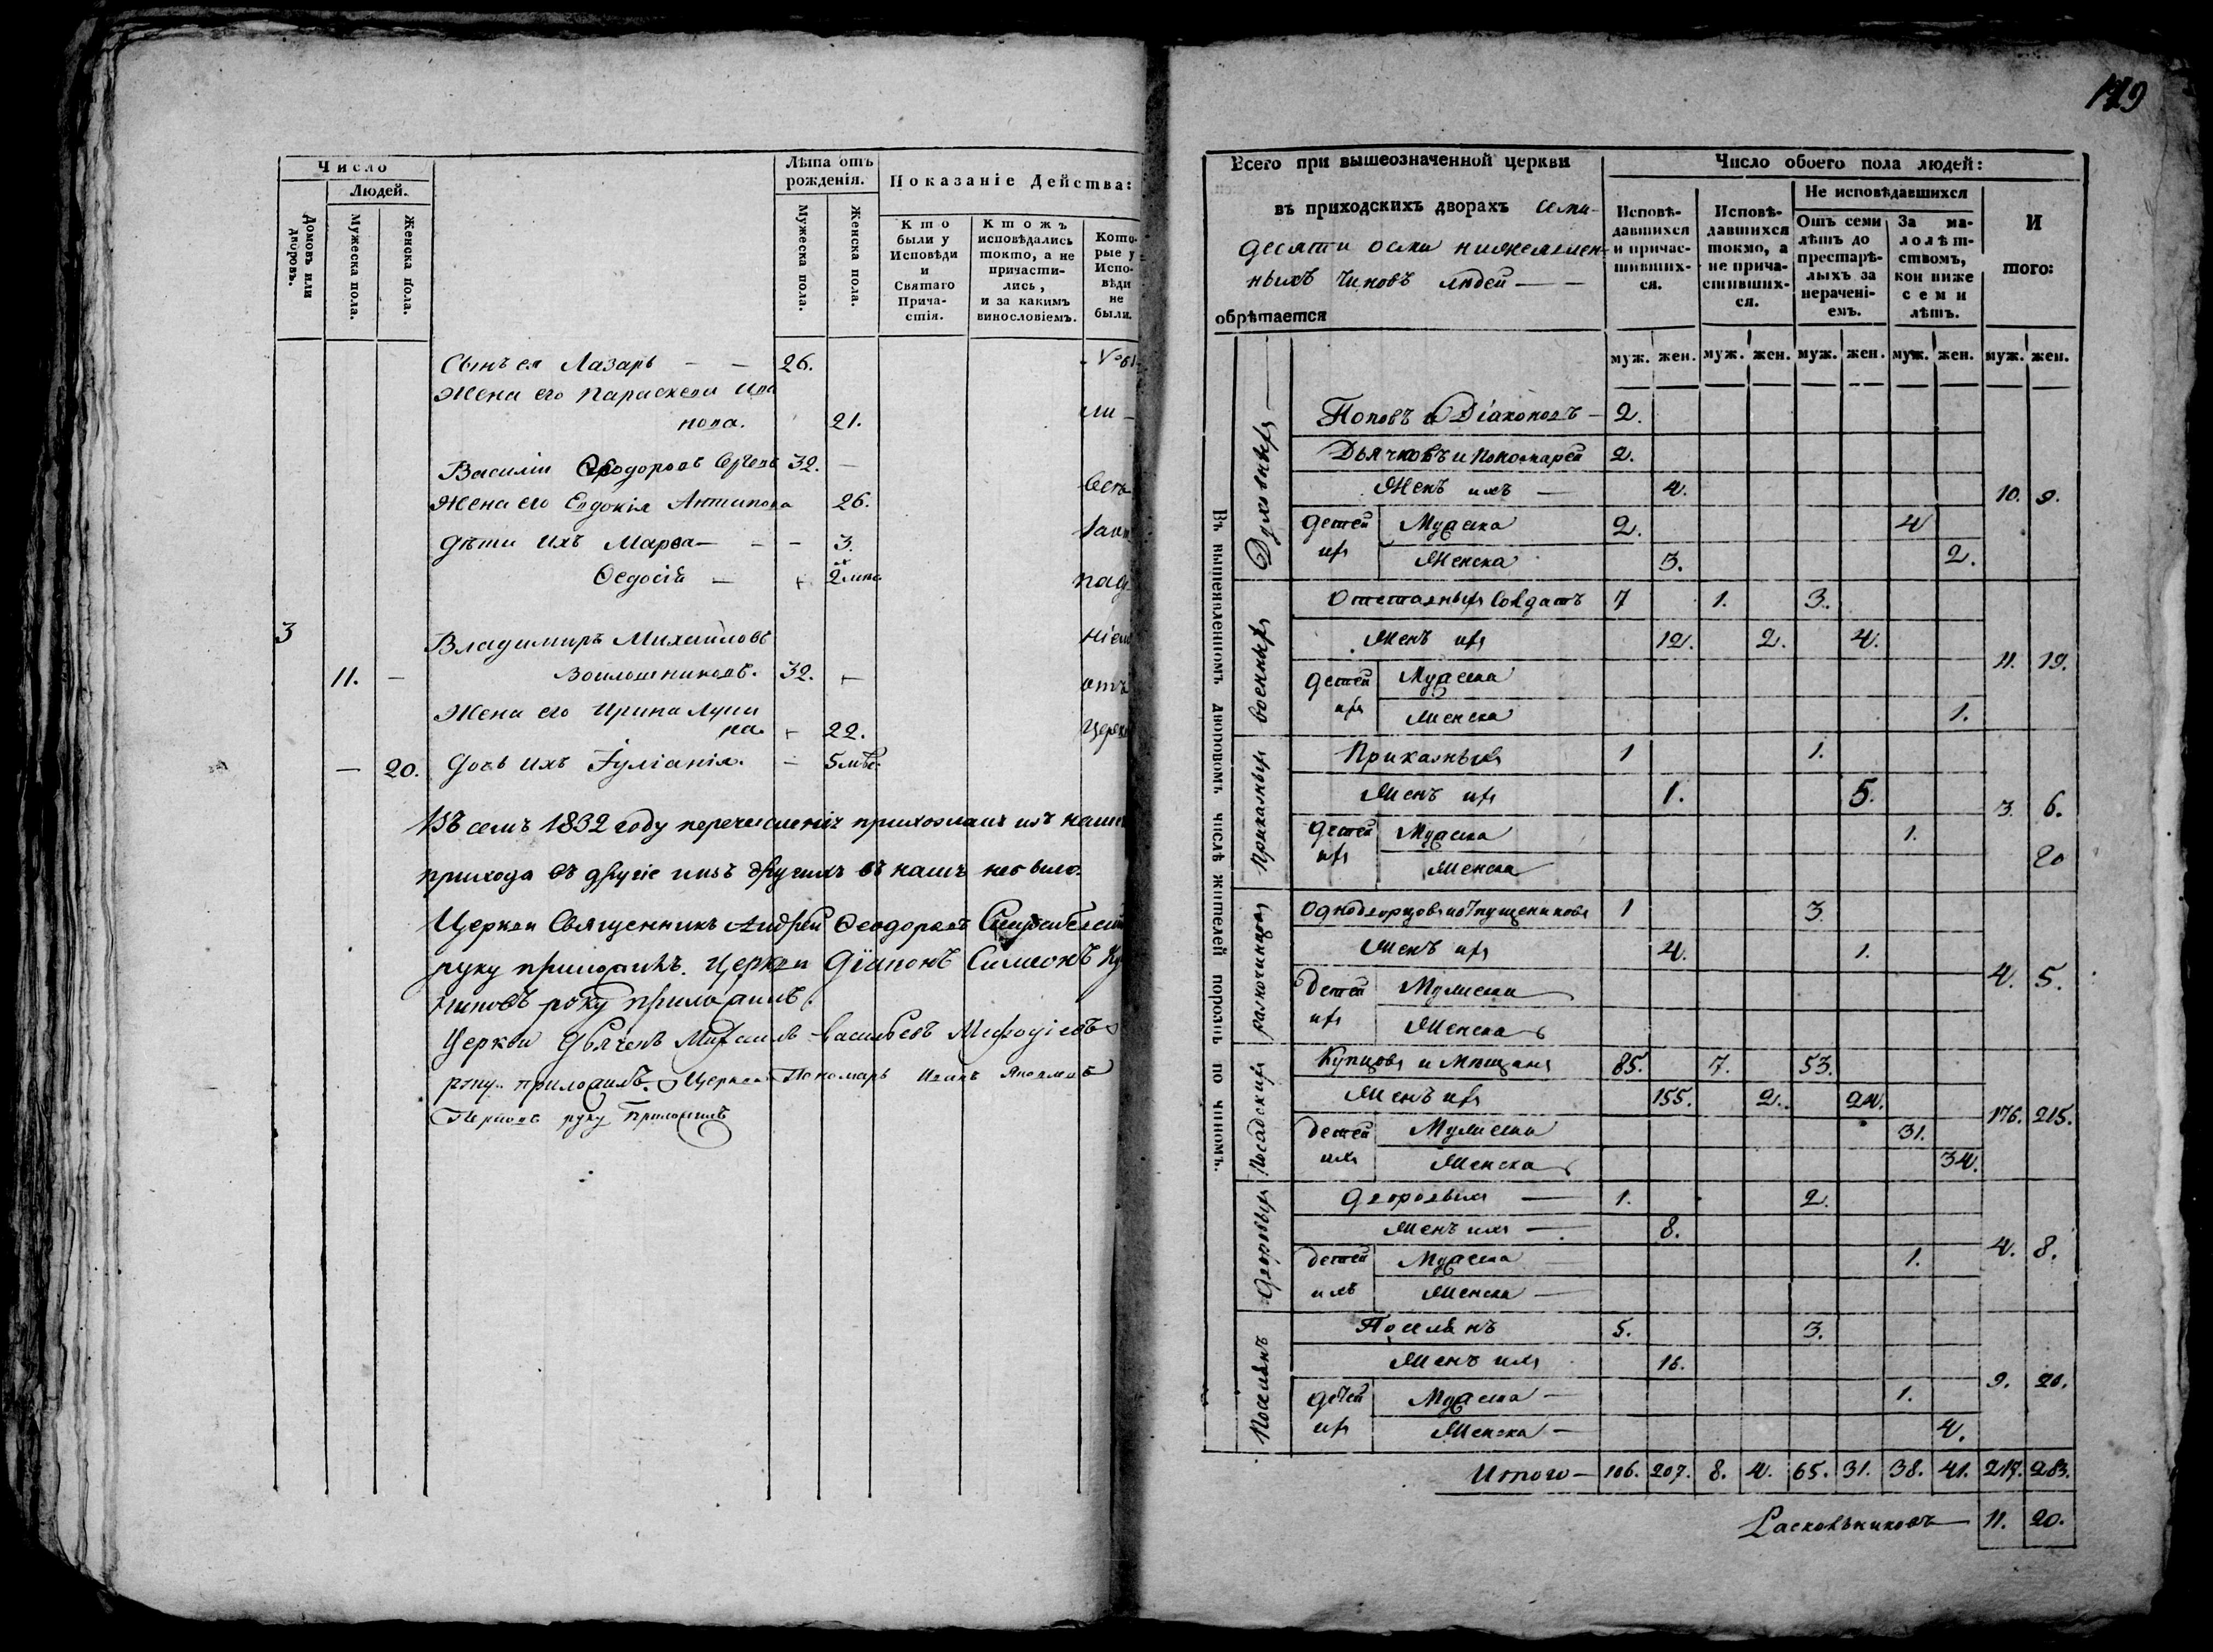 Число
Людей.
Домовъ или дворовъ.
Мужеска пола.
Женска пола.
Лѣта отъ рожденія.
Мужеска пола.
Женска пола.
Показаніе Действа:
Кто были у Исповѣди и Святаго Причастія.
Ктожъ исповѣдались токмо, а не причастились, и за какимъ винословіемъ.
Которые у Исповѣди не были.
Сынъ ея Лазарь — — 26.
Жена его Параскева Ива
нова. 21.
Василій Ѳеодоровъ 32. —
Жена его Евдокія Антипова 26.
Дѣти ихъ Марѳа — — — 3.
Ѳедосія — 2
3 Владимиръ Михайловъ
11. — Воилошниковъ. 32.
Жена его Ирина Лупи
на. 22.
— 20. Дочь ихъ Іуліанія. — 5 мѣс.
ніемъ
отъ
церкв
Въ семъ 1832 году перечисленія прихожанъ изъ нашего
прихода въ другіе и изъ другихъ въ нашъ не было.
Церкви Священникъ Андрей Ѳеодоровъ
руку приложилъ. Церкви Діаконъ Симеонъ
руку приложилъ.
Церкви Дьячекъ Михаилъ Васильевъ Меѳодіевъ
руку приложилъ. Церкви Пономарь Иванъ Яковлевъ
руку приложилъ
179
Всего при вышеозначенной церкви
въ приходскихъ дворахъ семи-
десяти осми нижеимен-
ныхъ чиновъ людей — —
обрѣтается
Число обоего пола людей:
Исповѣдавшихся и причастившихся.
Исповѣдавшихся токмо, а не причастившихся.
Не исповѣдавшихся
Отъ семи лѣтъ до престарѣлыхъ за нерачені-емъ.
За малолѣтствомъ, кои ниже семи лѣтъ.
И того:
муж. жен. муж. жен. муж. жен. муж. жен. муж. жен.
Въ вышеявленномъ дворовомъ числѣ жителей порознь по чиномъ.
Духовныхъ
Поповъ и Діаконовъ — 2.
Дьячковъ и Пономарей 2.
Женъ ихъ — 4. 10. 9.
Детей ихъ Мужеска 2. 4
Женска 3. 2.
Военныхъ
Отставныхъ Солдатъ 7 1. 3.
Женъ ихъ 12. 2. 4. 11. 19.
Детей ихъ Мужеска
Женска 1.
Приказныхъ
Приказныхъ 1 1.
Женъ ихъ 1. 5. 3. 6.
Детей ихъ Мужеска 1.
20
Женска
Разночинцовъ
Однодворцовъ и отпущениковъ 1 3.
Женъ ихъ 4. 1. 4. 5.
Детей ихъ Мужеска
Женска
Посадскихъ
Купцовъ и Мѣщанъ 85. 7. 53.
Женъ ихъ 155. 2. 24. 176. 215.
Детей ихъ Мужеска 31.
Женска 34.
Дворовыхъ
Дворовыхъ — 1. 2.
Женъ ихъ — 8. 4. 8.
Детей ихъ Мужеска 1.
Женска —
Поселянъ
Поселянъ 5. 3.
Женъ ихъ 16. 9. 20.
Детей ихъ Мужеска — 1.
Женска — 4.
Итого — 106. 207. 8. 4. 65. 31. 38. 41. 217. 283.
Раскольниковъ — 11. 20.